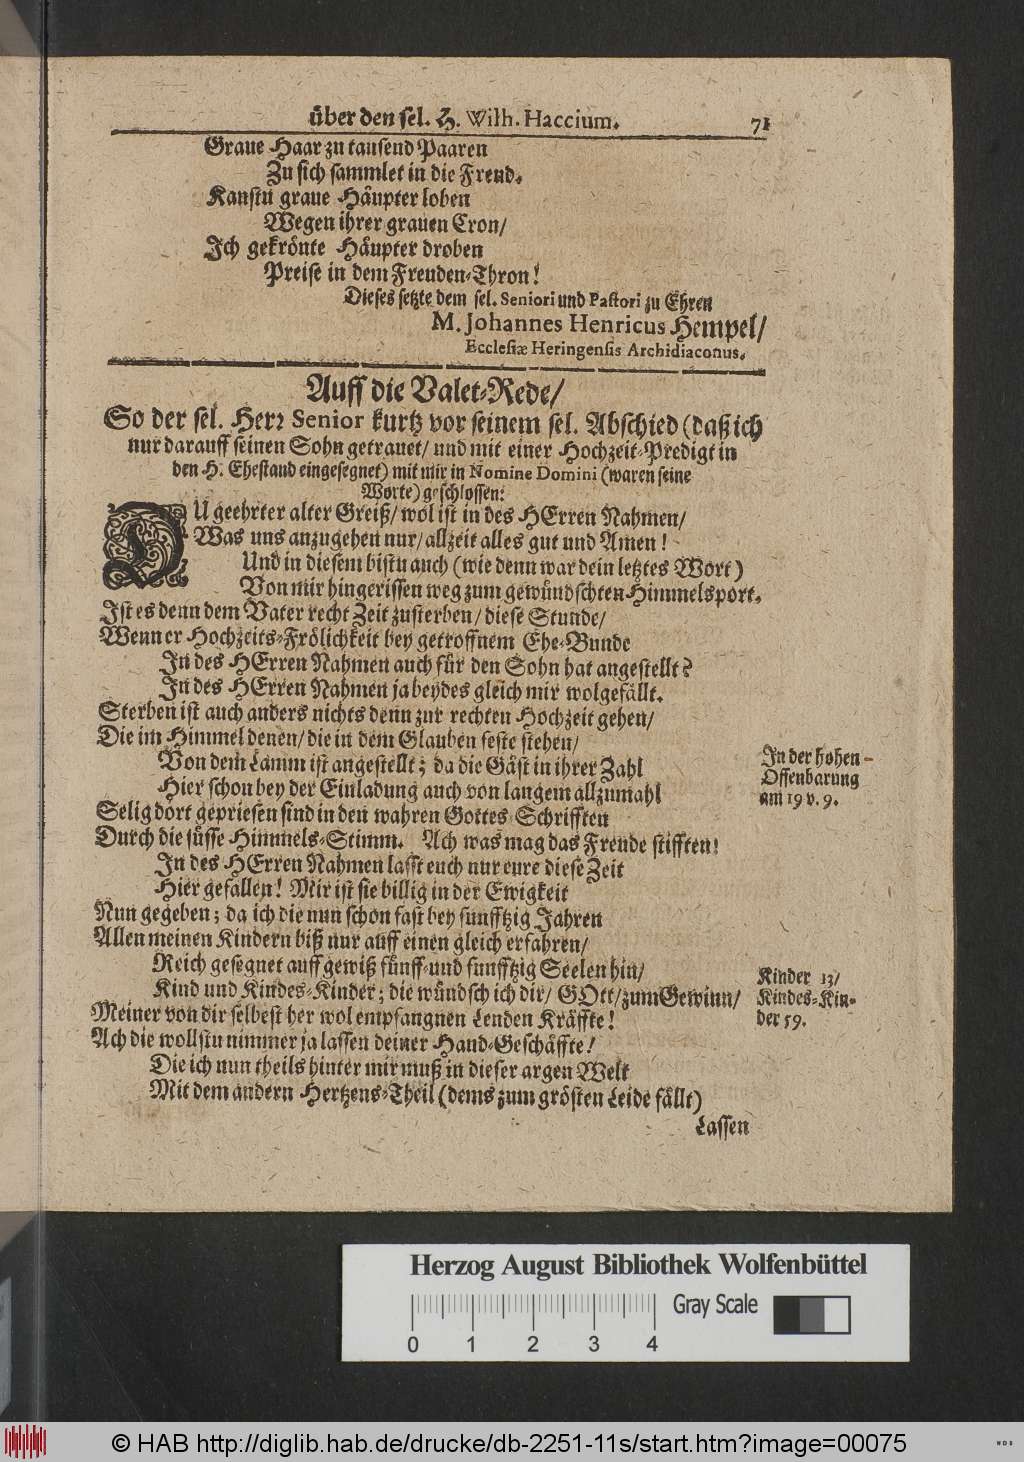 über den sel. H. Wilh. Haccium. 71
Graue Haar zu tausend Paaren
Zu sich sammlet in die Freud.
Kanstu graue Häupter loben
Wegen ihrer grauen Cron/
Ich gekrönte Häupter droben
Preise in dem Freuden-Thron!
Dieses setzte dem sel. Seniori und Pastori zu Ehren
M. Johannes Henricus Hempel/
Ecclesiæ Heringensis Archidiaconus.
Auff die Valet-Rede/
So der sel. Herr Senior kurtz vor seinem sel. Abschied (daß ich
nur darauff seinen Sohn getrauet/ und mit einer Hochzeit-Predigt in
den H. Ehestand eingesegnet) mit mir in Nomine Domini (waren seine
Worte) geschlossen:
DU geehrter alter Greiß/ wol ist in des HErren Nahmen/
Was uns anzugehen nur/ allzeit alles gut und Amen!
Und in diesem bistu auch (wie denn war dein letztes Wort)
Von mir hingerissen weg zum gewündschten Himmelsport.
Ist es denn dem Vater recht Zeit zusterben/ diese Stunde/
Wenn er Hochzeits-Frölichkeit bey getroffnem Ehe-Bunde
In des HErren Nahmen auch für den Sohn hat angestellt?
In des HErren Nahmen ja beydes gleich mir wolgefällt.
Sterben ist auch anders nichts denn zur rechten Hochzeit gehen/
Die im Himmel denen/ die in dem Glauben feste stehen/
Von dem Lamm ist angestellt; da die Gäst in ihrer Zahl
Hier schon bey der Einladung auch von langem allzumahl
Selig dort gepriesen sind in den wahren Gottes Schrifften
Durch die süsse Himmels-Stimm. Ach was mag das Freude stifften!
In des HErren Nahmen lasst euch nur eure diese Zeit
Hier gefallen! Mir ist sie billig in der Ewigkeit
Nun gegeben; da ich die nun schon fast bey funfftzig Jahren
Allen meinen Kindern biß nur auff einen gleich erfahren/
Reich gesegnet auff gewiß fünff-und funfftzig Seelen hin/
Kind und Kindes-Kinder; die wündsch ich dir/ GOtt/ zum Gewinn/
Meiner von dir selbest her wol empfangnen Lenden Kräffte!
Ach die wollstu nimmer ja lassen deiner Hand-Geschäffte!
Die ich nun theils hinter mir muß in dieser argen Welt
Mit dem andern Hertzens-Theil (dems zum grösten Leide fällt)
Lassen
In der hohen
Offenbarung
am 19 v. 9.
Kinder 13/
Kindes-Kin-
der 59.
Herzog August Bibliothek Wolfenbüttel
Gray Scale
0 1 2 3 4
© HAB http://diglib.hab.de/drucke/db-2251-11s/start.htm?image=00075
WDB